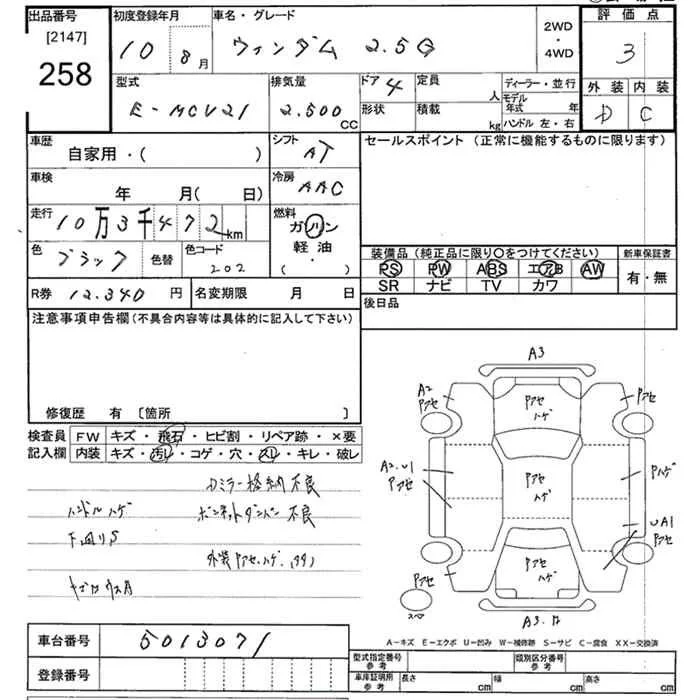 出品番号
[2147]
258
初度登録年月
10 8月
車名・グレード
ウィンダム 2.5G
2WD
・
4WD
評価点
3
外装 内装
D C
型式
E-MCV21
排気量
2.500cc
ドア 4
定員 人
形状
積載 kg
ディーラー・並行
モデル年式 年
ハンドル 左・右
車歴
自家用・( )
シフト
AT
車検
年 月( 日)
冷房
AAC
走行
10万3千472km
燃料
ガソリン
軽油
・
( )
色
ブラック
色替
色コード
202
R券 12.340 円
名変期限 月 日
セールスポイント (正常に機能するものに限ります)
装備品 (純正品に限り〇をつけてください)
PS PW ABS エアB AW
SR ナビ TV カワ
新車保証書
有・無
後日品
注意事項申告欄 (不具合内容等は具体的に記入して下さい)
修復歴 有 [箇所 ]
検査員
記入欄
FW キズ・飛石・ヒビ割・リペア跡・×要
内装 キズ・汚レ・コゲ・穴・スレ・キレ・破レ
ドミラー格納不良
ハンドルハゲ
ボンネットダンパー不良
下回りS
A3
A2
Pアセ
Pアセ
Pアセ
ハゲ
A2.U1
Pアセ
Pアセ
ハゲ
Pハゲ
UA1
Pアセ
Pアセ
Pアセ
ハゲ
スペア
車台番号
5013071
登録番号
A-キズ E-エクボ U-凹み W-補修跡 S-サビ C-腐食 XX-交換済
型式指定番号
参考
類別区分番号
参考
車庫証明用
参考
長さ cm
幅 cm
高さ cm